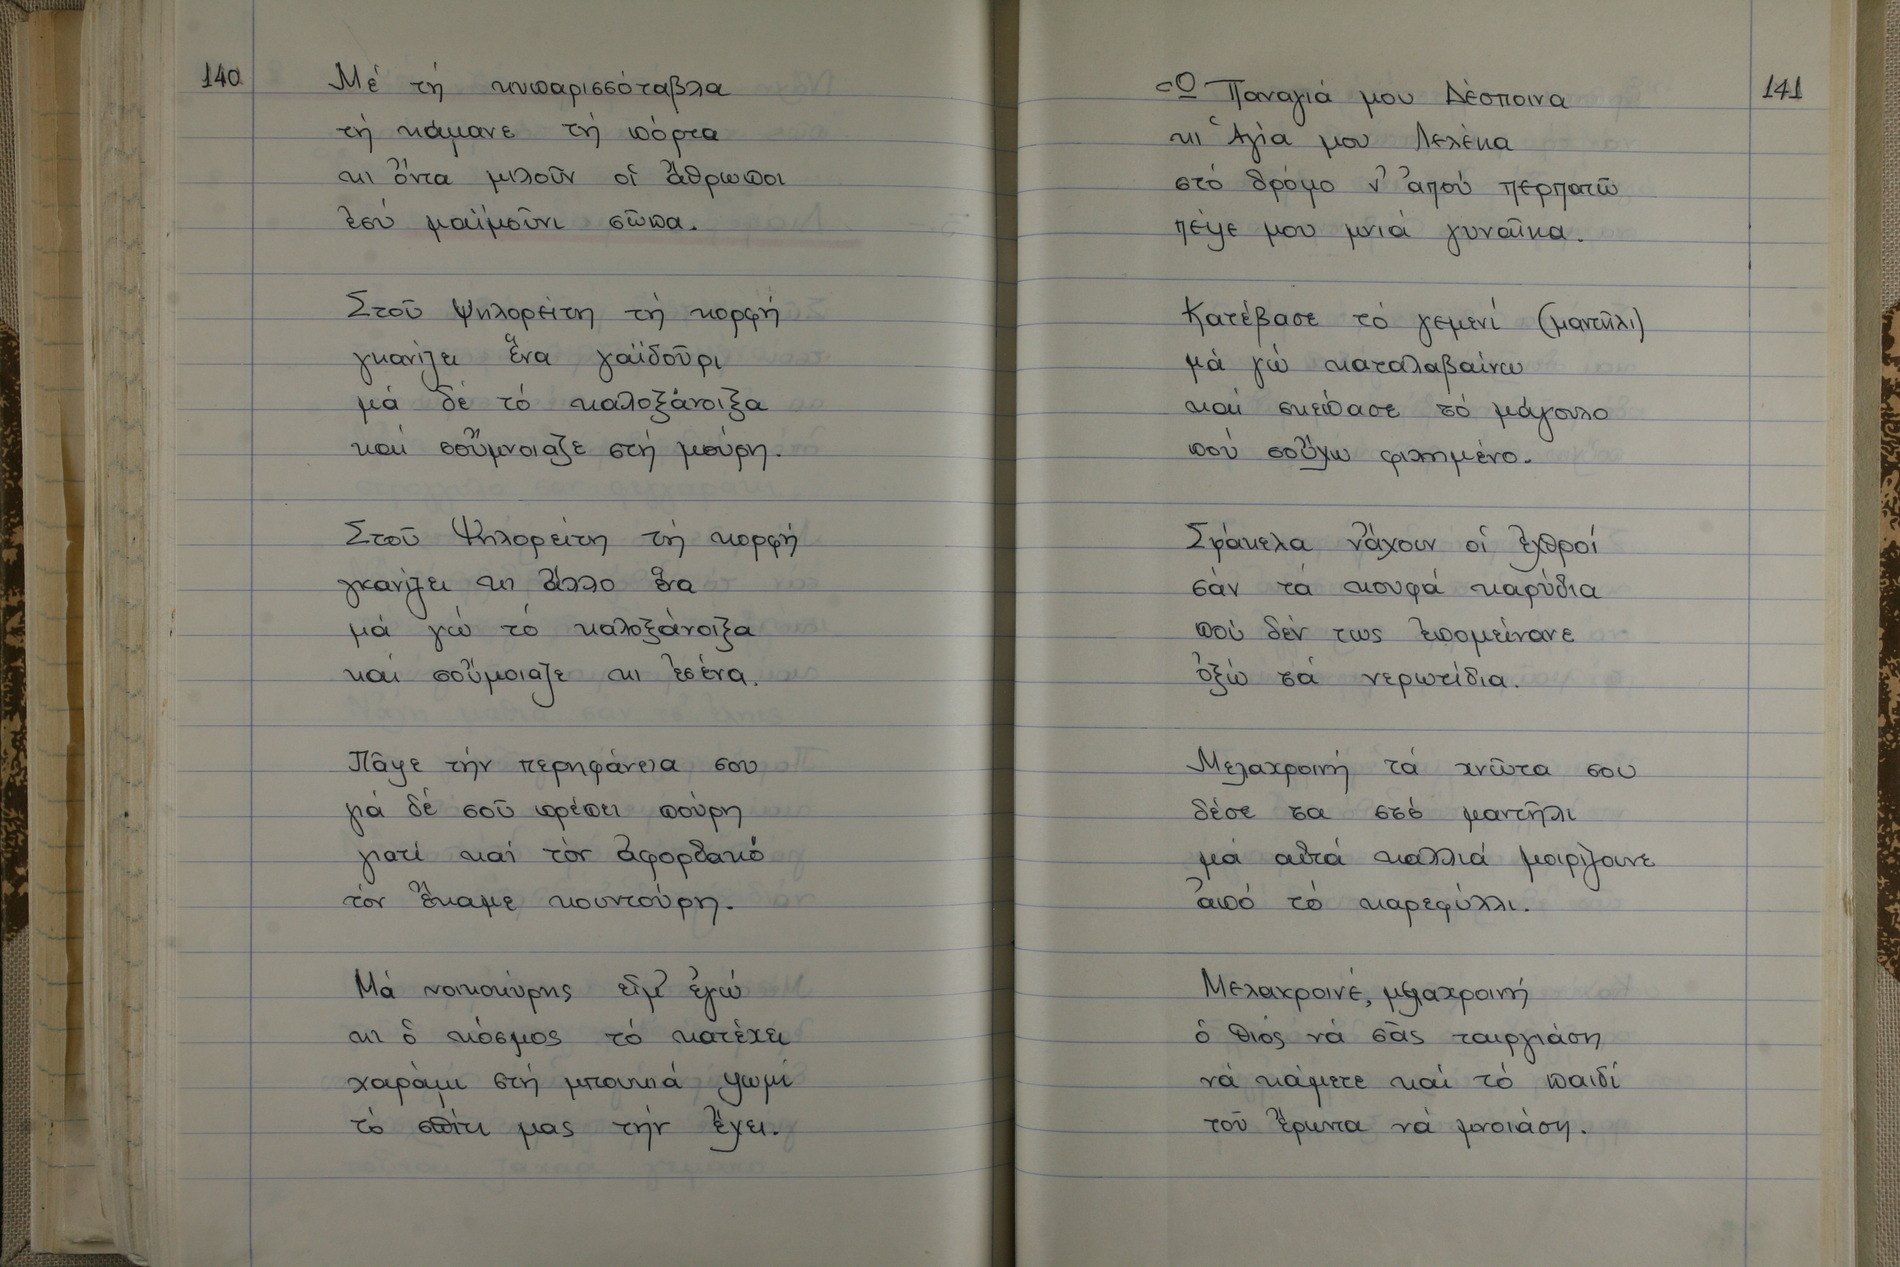 140
Μέ τή κυπαρισσόταβλα
τή κάμανε τή πόρτα
κι ὄντα μιλοῦν οἱ ἄθρωποι
ἐσύ μαϊμοῦνι σῶπα.
Στοῦ Ψηλορείτη τή κορφή
γκανίζει ἕνα γαϊδοῦρι
μά δέ τό καλοξάνοιξα
καί σοὔμνοιαζε στή μούρη.
Στοῦ Ψηλορείτη τή κορφή
γκανίζει κι ἄλλο ἕνα
μά γώ τό καλοξάνοιξα
καί σοὔμοιαζε κι ἐσένα.
Πᾶψε τήν περηφάνεια σου
γιά δέ σοῦ πρέπει πούρη
γιατί καί τόν ἀφορδακό
τόν ἔκαμε κουντούρη.
Μά νοικοκύρης εἶμ' ἐγώ
κι ὁ κόσμος τό κατέχει
χαράμι στή μπουκιά ψωμί
τό σπίτι μας τήν ἔχει.
141
Ὦ Παναγιά μου Δέσποινα
κι Ἁγία μου Λελέκα
στό δρόμο ν' ἀπού περπατῶ
πέψε μου μνιά γυναῖκα.
Κατέβασε τό γεμενί (μαντῆλι)
μά γώ καταλαβαίνω
καί σκέπασε τό μάγουλο
πού σοὔχω φιλημένο.
Σφάκελα νἄχουν οἱ ἐχθροί
σάν τά κουφά καρύδια
πού δέν τως ἐπομείνανε
ὀξώ τά νερωτίδια.
Μελαχροινή τά χνῶτα σου
δέσε τα στό μαντῆλι
μά αὐτά καλλιά μοιρίζουνε
ἀπό τό καρεφύλλι.
Μελαχροινέ, μελαχροινή
ὁ θιός νά σᾶς ταιργιάση
νά κάμετε καί τό παιδί
τοῦ Ἔρωντα νά μνοιάση.